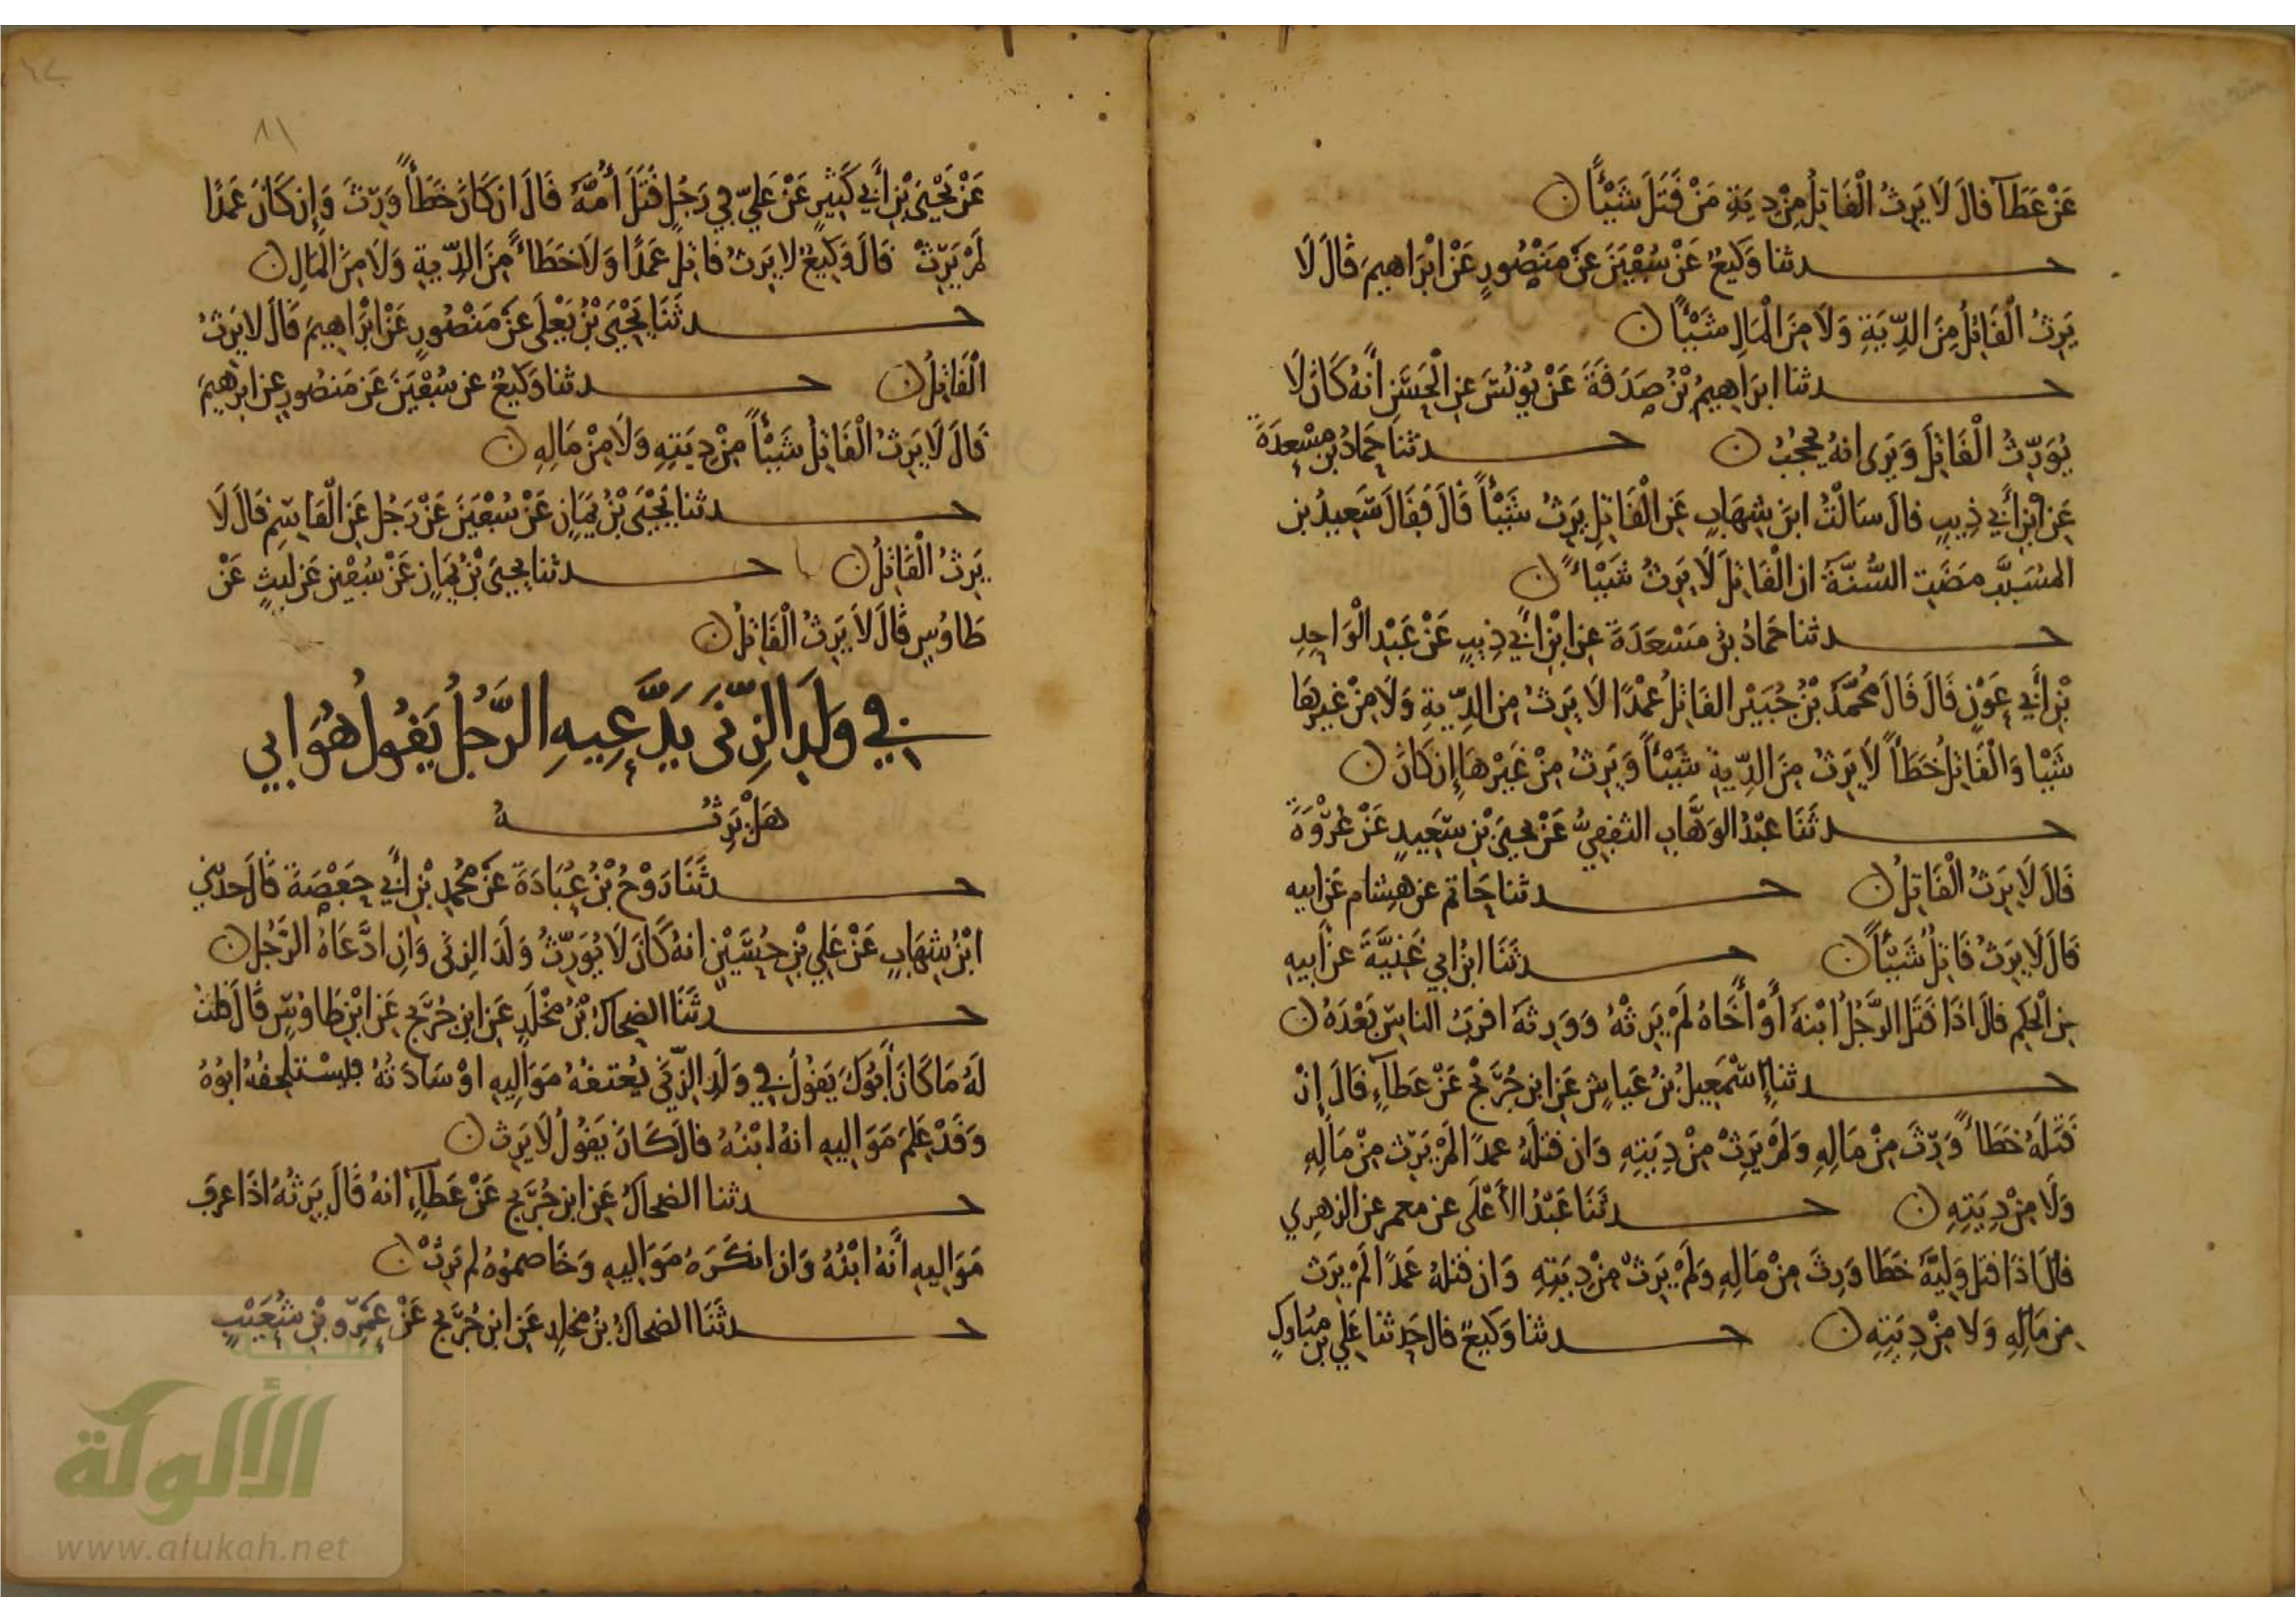 عَنْ عَطَآ قالَ لَا يَرِثُ الْقَاتِلُ مِنْ دِيَةِ مَنْ قَتَلَ شَيْئًا ن
حدثنا وَكِيعٌ عَنْ سُفْيَنَ عَنْ مَنْصُورٍ عَنْ ابْرَاهِيمَ قَالَ لَا
يَرِثُ الْقَاتِلُ مِنَ الدِّيَةِ وَلَا مِنَ الْمَالِ شَيْئًا ن
حدثنا ابرَاهِيمُ بْنُ صَدَقَةَ عَنْ يُونُسَ عنِ الْحَسَنِ أنَّهُ كَانَ لَا
يُوَرِّثُ الْقَاتِلَ وَيَرَى انهُ يَحْجُبُ ن حدثنا حَمادُ بن مَسْعدَةَ
عَنِ ابْنِ أَبي ذِيبٍ قالَ سَالْتُ ابنَ شِهَابٍ عَنِ الْقَاتِلِ يَرِثُ شَيْئاً قَالَ فَقَالَ سَعِيدُ بن
المسَيَّبِ مَضَتِ السُّنَّةُ ان الْقَاتِلَ لَا يَرِثُ شَيْئاً ن
حدثنا حَمادُ بن مَسْعَدَةَ عنِ ابْنِ أبي ذِيبٍ عَنْ عَبْدِ الْوَاحِدِ
بْنِ أَبي عَوْنٍ قَالَ قَالَ مُحَمَّدُ بْنُ جُبَيْرٍ القَاتِلُ عَمْدًا لَا يَرِثُ مِن الدِّيةِ وَلَا مِنْ غيرِهَا
شَيْا وَالْقَاتِلُ خَطَأً لَا يَرِثُ مِنَ الدِّيةِ شَيْئاً وَيَرِثُ مِنْ غَيْرِهَا إن كَانَ ن
حدثَنَا عَبْدُ الوَهَّابِ الثقفِيُّ عَنْ يحيَى بْنِ سَعِيدٍ عَنْ عُرْوَةَ
قَالَ لَا يَرِثُ الْقَاتِلُ ن حدثنا حَاتم عن هشام عَن ابيه
قَالَ لَا يَرِثُ قَاتِلٌ شَيْئاً ن حدثَنَا ابنُ ابي غَنِيَّةَ عن ابيهِ
عنِ الْحَكَمِ قالَ اذَا قَتَلَ الرَّجُلُ ابْنَهُ أوْ أَخَاهُ لَمْ يَرِثْهُ وَوَرِثَهُ اقرَبُ الناسِ بَعْدَهُ ن
حدثنا إسْمَعِيلُ بنُ عَياشٍ عَنِ ابنِ جُرَيْجٍ عَنْ عَطَاءٍ قَالَ إنْ
قَتَلَهُ خَطَاً وَرِثَ مِنْ مَالِهِ وَلَمْ يَرِثْ مِنْ دِيَتِهِ وَان قتلَهُ عمدًا لَمْ يَرِث مِنْ مَالِهِ
وَلَا مِنْ دِيَتِهِ ن حدثَنَا عَبْدُ الأَعْلَى عن معمرٍ عنِ الزهري
قالَ اذَا قتل وَلِيَّهُ خَطَا وَرِثَ مِنْ مَالِهِ وَلَمْ يَرِثْ مِنْ دِيَتِهِ وَان قتلهُ عَمدًا لَمْ يَرِث
مِن مَالِهِ وَلا مِنْ دِيَتِهِ ن حدثنا وَكيعٌ قال حَدثنا عَلِي بن مُبَاركٍ
٨١
عَنْ يَحْيَى بْنِ أبي كَثِيرٍ عَنْ عَلِيّ فِي رَجُلٍ قَتَلَ أُمَّهُ قَالَ ان كَانَ خَطَأً وَرِثَ وَإِن كَانَ عَمْدًا
لَمْ يَرِثْ قَالَ وَكِيعٌ لا يَرِثُ قاتِلٌ عَمْدًا وَلَا خَطَاً مِنَ الدِّيةِ وَلَا مِنَ الْمَالِ ن
حدثَنَا يَحْيَى بْنُ يَعْلَى عَنْ مَنْصُورٍ عَنْ ابْرَاهِيمَ قَالَ لا يَرِثُ
الْقَاتِلُ ن حدثنا وَكِيعٌ عن سُفْيَنَ عَن مَنصُورٍ عن ابرهِيمَ
قَالَ لَا يَرِثُ الْقَاتِلُ شَيْئاً مِنْ دِيَتِهِ وَلَا مِنْ مَالِهِ ن
حدثنا يَحْيَى بْنُ يَمَانٍ عَنْ سُفْيَنَ عَنْ رَجُلٍ عَنِ الْقَاسِمِ قَالَ لَا
يَرِثُ الْقَاتِلُ ن حدثنا يحيَى بْنُ يَمَانٍ عَنْ سُفْين عَن لَيثٍ عَنْ
طَاوُسٍ قَالَ لَا يَرِثُ الْقَاتِلُ ن
فِي وَلَدِ الزِّنَى يَدَّعِيهِ الرَّجُلُ يَقُولُ هُوَ ابنِي
هَلْ يَرِثُهُ
حدثَنَا رَوْحُ بْنُ عُبَادَةَ عَنْ مُحمدِ بْنِ أَبي حَفْصَةَ قَالَ حدثني
ابْنُ شِهَابٍ عَنْ عَلِي بْنِ حُسَيْنٍ انهُ كَانَ لَا يُوَرِّثُ وَلَدَ الزِنَى وَانِ ادَّعَاهُ الرَّجُلُ ن
حدثَنَا الضحاكُ بْنُ مَخْلَدٍ عَنِ ابنِ جُرَيْجٍ عَنِ ابْنِ طَاوُسٍ قَالَ قلتُ
لَهُ مَا كَانَ أَبُوكَ يَقُولُ فِي وَلَدِ الزِّنَى يُعتقهُ مَوَالِيهِ اوْ سَادَتُهُ فيسْتلحقهُ ابُوهُ
وَقَدْ عَلِمَ مَوَالِيهِ انهُ ابْنُهُ قالَ كَانَ يَقُولُ لَا يَرِث ن
حدثنا الضحاكُ عَنِ ابنِ جُرَيْجٍ عَنْ عَطَآءٍ انهُ قَالَ يَرِثُهُ اذَا عرفَ
مَوَاليهِ أَنَّهُ ابْنُهُ وَان انكَرَهُ مَوَاليهِ وَخَاصمُوهُ لم يَرِثْ ن
حدثَنَا الضحاكُ بنُ مخلدٍ عَنِ ابنِ جُرَيْجٍ عَنْ عَمْرِو بْنِ شُعَيْبٍ
شبكة
الألوكة
www.alukah.net